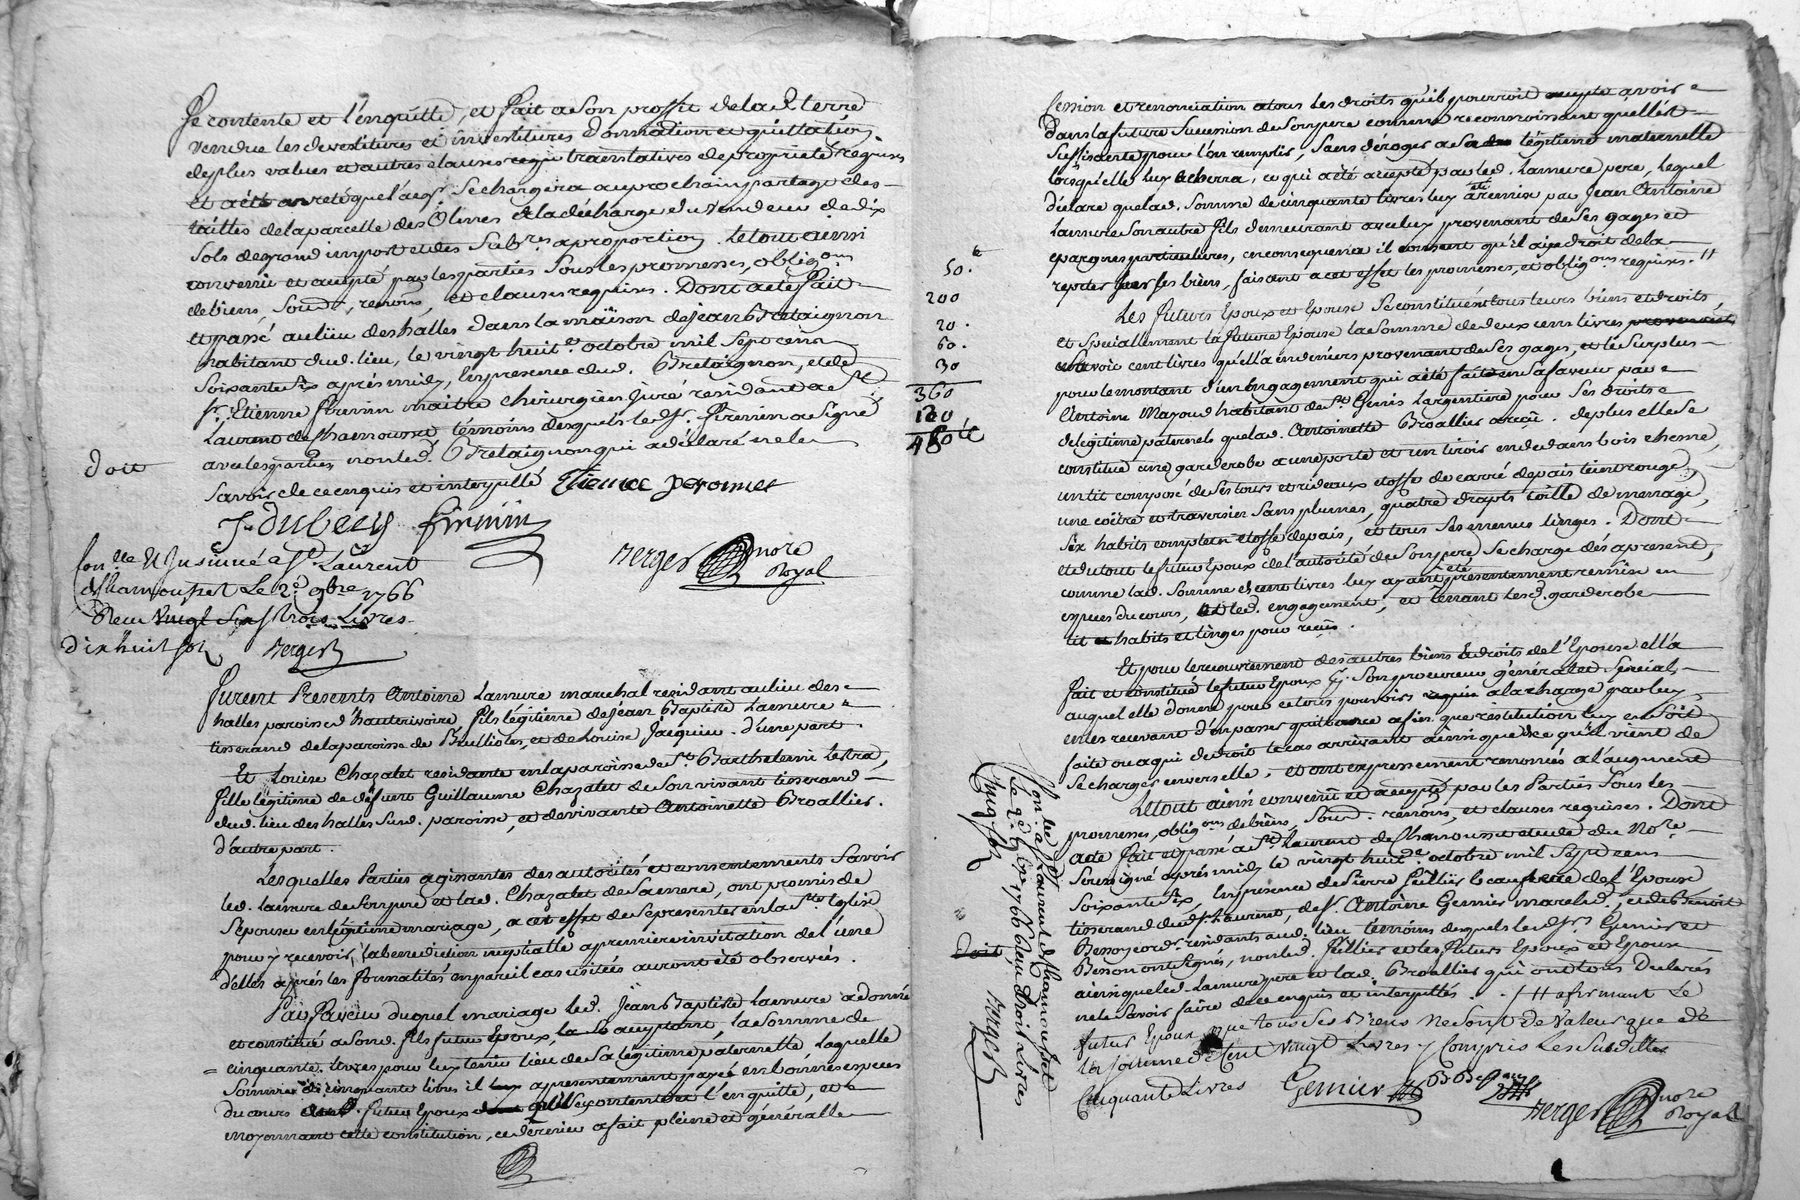 se contente et l'enquitte, et fait a son proffit de lad. terre
vendue les devestitures et investitures donnation et quittation
de plus values et autres clauses req. translatives de propriété requises
et a été arreté que l'acqr. se chargera au prochain partage des
tailles de la parcelle des Olmes a la décharge du vendeur de dix
sols de grand import et des subres. a proportion. Le tout ainsi
convenu et accepté par les parties sous les promesses, obligons
de biens, soum., renons, et clauses requises. Dont acte fait
et passé au lieu des halles dans la maison de jean Bretaignon
habitant dud. lieu, le vingt huite. octobre mil sept cens
soixante six après midy, en presence dud. Bretaignon, et de
sr. Etienne firmin maitre chirurgien juré résidant a St.
Laurent de Chamousset témoins desquels led. sr. firmin a signé
avec les parties, non led. Bretaignon qui a déclaré ne le
doit
savoir de ce enquis et interpellé Etienne peronnet
J. dubecy firmin
Berger nore
Royal
Con.lle & Insinué a St. Laurent
de Chamousset Le 2e. 9bre 1766
Reçu vingt six trois Livres
dix huit sols Berger
Furent Presents Antoine Lamure marechal residant au lieu des
halles paroisse d'hauterivoire, fils légitime de jean Baptiste Lamure
tisserand de la paroisse de Brullioles, et de Louise Jacquin. d'une part.
Et Louise Chazalet residante en la paroisse de St. Barthelemi Lestra,
fille légitime de défunt Guillaume Chazalet de son vivant tisserand
dud. lieu des halles sud. paroisse, et de vivante Antoinette Broallier.
d'autre part.
Lesquelles Parties agissantes des autorités et consentements savoir
led. Lamure de son pere et lad. Chazalet de sa mere, ont promis de
s'epouser en légitime mariage, a cet effet de se presenter en la Ste. Eglise
pour y recevoir la benediction nuptialle a premiere invitation de l'une
d'elles après les formalités en pareil cas usitées auront été observées.
En faveur duquel mariage led. Jean Baptiste Lamure a donné
et constitué a sond. fils futur Epoux, la ce acceptant, la somme de
cinquante livres pour luy tenir lieu de sa légitime paternelle laquelle
somme de cinquante livres il luy a presentement payé en bonnes especes
du cours dont led. futur Epoux se contente et l'enquitte, et
moyennant cette constitution, ce dernier a fait pleine et généralle
50. tt
200
20.
60.
30
360
120
480 tt
Cession et renonciation a tous les droits qu'il pourroit avoir
dans la future succession de son pere comme reconnoissant qu'elle est
suffisante pour l'en remplir, sans déroger a sa légitime maternelle
lorsqu'elle luy echerra, ce qui a été accepté par led. Lamure pere, lequel
déclare que lad. somme de cinquante livres luy a été remise par Jean Antoine
Lamure son autre fils demeurant avec luy provenant de ses gages et
epargnes particulieres, en consequence il consent qu'il aye droit de la
repeter sur ses biens, faisant a cet effet les promesses, et obligons requises. //
Les futurs Epoux et Epouse se constituent tous leurs biens et droits,
et speciallement la future Epouse la somme de deux cens livres provenants
savoir cent livres qu'ell'a en deniers provenant de ses gages, et le surplus
pour le montant d'un engagement qui a été fait en sa faveur par
Antoine Mayoud habitant de St. Genis Largentiere pour ses droits
de légitime paternels que lad. Antoinette Broallier a reçu. de plus elle se
constitue une garderobe a une porte et un tiroir en dedans bois chesne,
un lit composé de ses tours et rideaux etoffe de carré de pais teint rouge,
une coitre et traversier sans plumes, quatre draps toille de menage,
six habits complets etoffe de pais, et tous ses menus linges. Dont
et du tout le futur Epoux de l'autorité de son pere se charge dès apresent,
comme lad. somme de cent livres luy ayant été presentement remise en
especes du cours, et led. engagement, et tenant lesd. garderobe
lit et habits et linges pour reçus.
Et pour le recouvrement des autres biens & droits de l'Epouse ell'a
fait et constitué le futur Epoux pr. son procureur général et special,
auquel elle donne pour ce tous pouvoirs requis a la charge par luy
en les recevant d'en passer quittance afin que restitution luy en soit
faite ou a qui de droit le cas arrivant ainsi que de ce qu'il vient de
se charger envers elle, et ont expressement renoncés a l'augment
Le tout ainsi convenu et accepté par les Parties sous les
promesses, obligons de biens, soum. renons, et clauses requises. Dont
acte fait et passé a St. Laurent de Chamousset etude du Nore.
soussigné après midy le vingt huite. octobre mil sept cens
soixante six, en presence de Pierre Jullier de l'Epouse
tisserand dud. St. Laurent, de sr. Antoine Gemier marchd., et de Benoit
Besson cordr. residants aud. lieu témoins desquels lesd. srs. Gemier et
Besson ont signés, non led. Jullier et les futurs Epoux et Epouse
ainsi que led. Lamure pere et lad. Broallier qui ont tous declarés
ne le savoir faire de ce enquis et interpellés. // afirmant Le
futur Epoux que tous ses Biens ne sont de valeur que de
la somme de Cent vingt Livres y Compris Les susdittes
Cinquante Livres Gemier B Besson
Berger nore
Royal
Con.lle a St. Laurent de Chamousset
Le 2e. 9bre 1766 Reçu trois Livres
cinq sols
doit
Berger